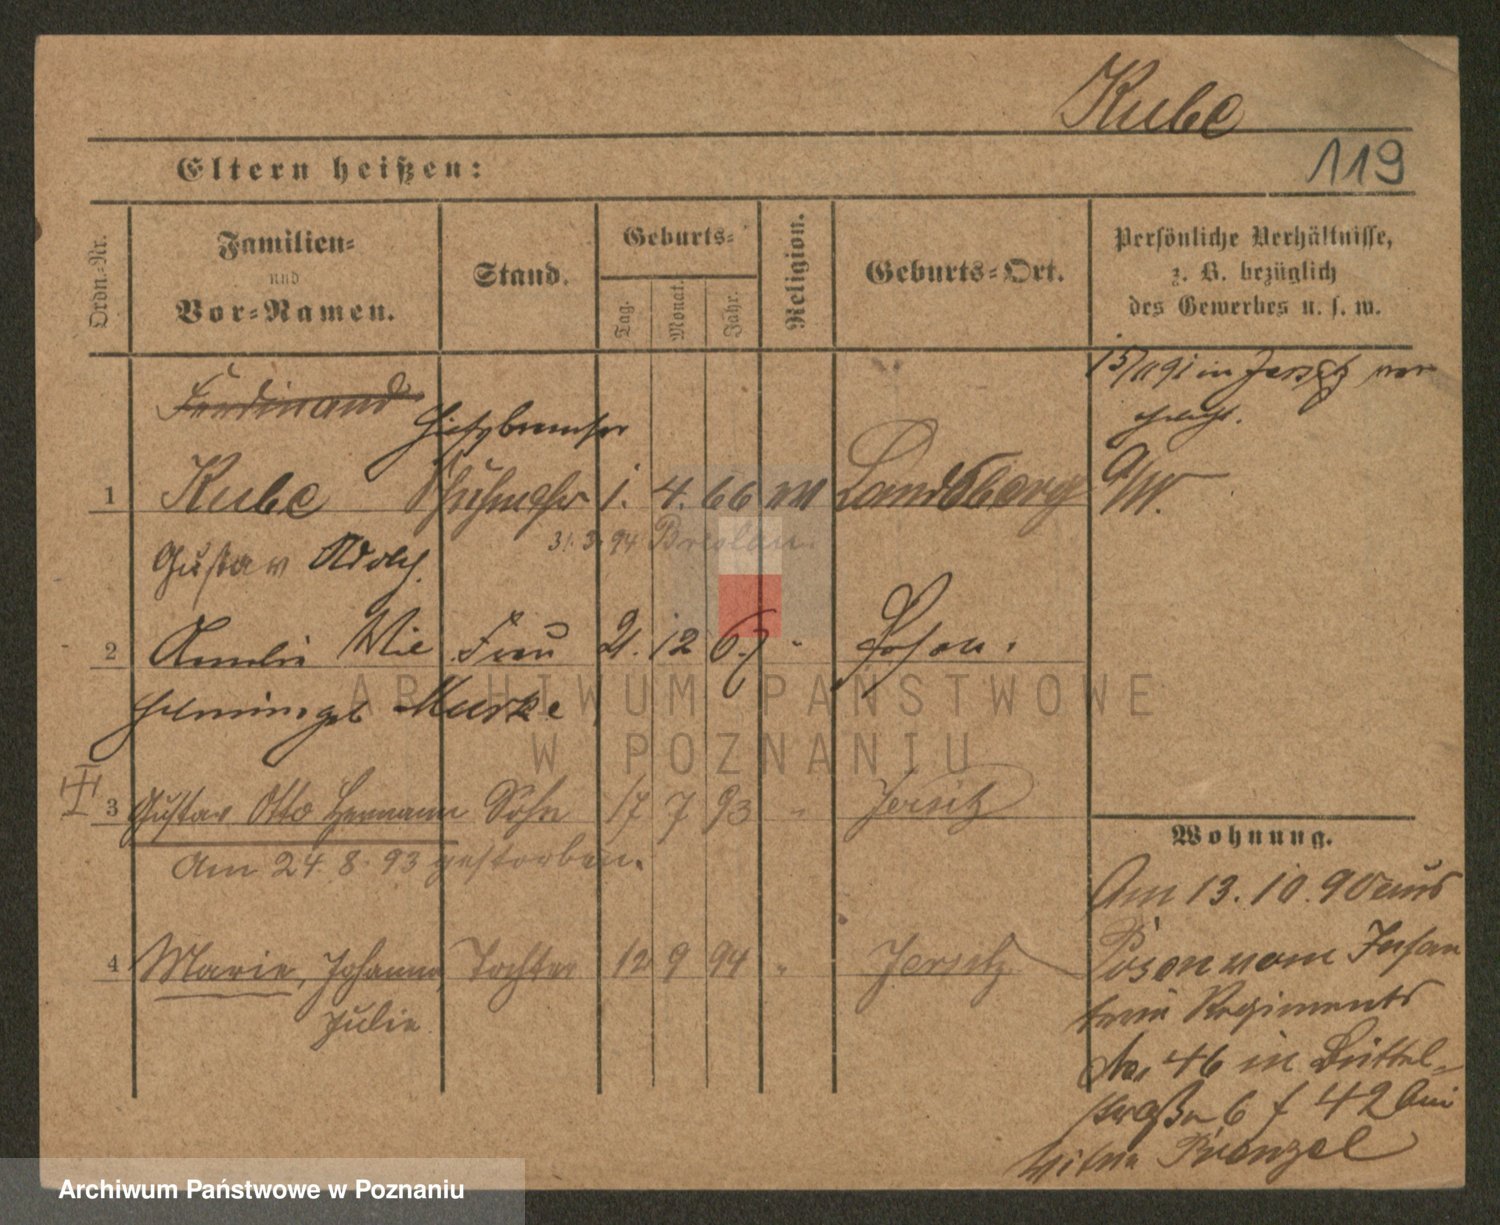 Kube
119
Eltern heißen:
Ordn.-Nr.
Familien-
und
Vor-Namen.
Stand.
Geburts-
Tag.
Monat.
Jahr.
Religion.
Geburts-Ort.
Persönliche Verhältnisse,
z. B. bezüglich
des Gewerbes u. s. w.
15/11 91 in Jersitz
Ferdinand
1 Kube 1. 4. 66 Landsberg
31. 3. 94 Breslau
Gustav Adolf
2 Amalie Frau 21. 12 67 " Posen.
geb Murke
3 Gustav Otto Hermann Sohn 17 7 93 " Jersitz
Am 24. 8. 93 gestorben.
Wohnung.
4 Marie, Johanna Tochter 12 9 94 " Jersitz
Julie
Am 13. 10. 90 aus
Posen vom Infan
terie Regiments
No. 46 in
straße 6 f 42 bei
Wittwe Prenzel
ARCHIWUM PAŃSTWOWE
W POZNANIU
Archiwum Państwowe w Poznaniu